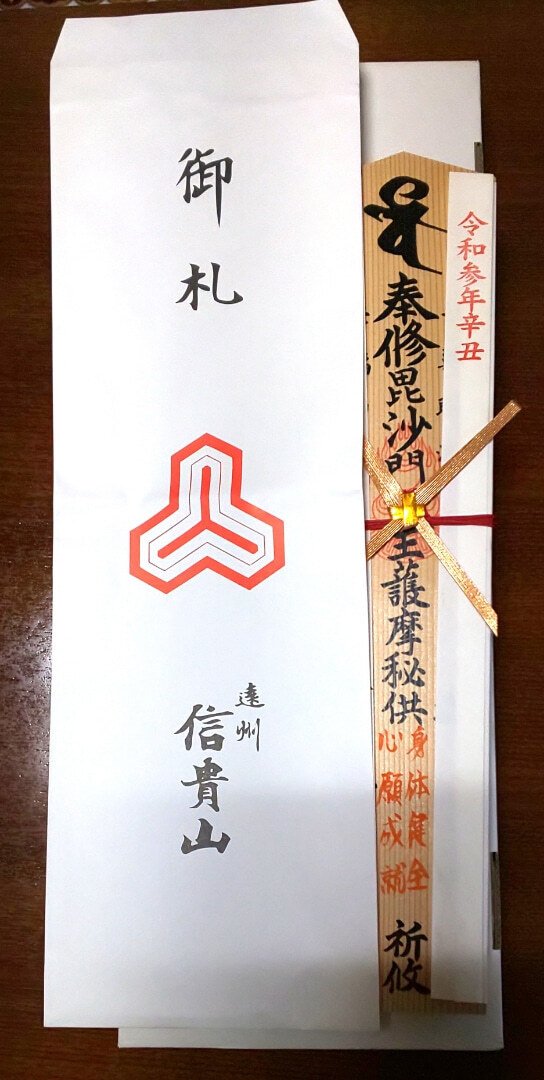 御札
遠州
信貴山
令和参年辛丑
奉修毘沙門
王護摩秘供
身体健全
心願成就
祈攸